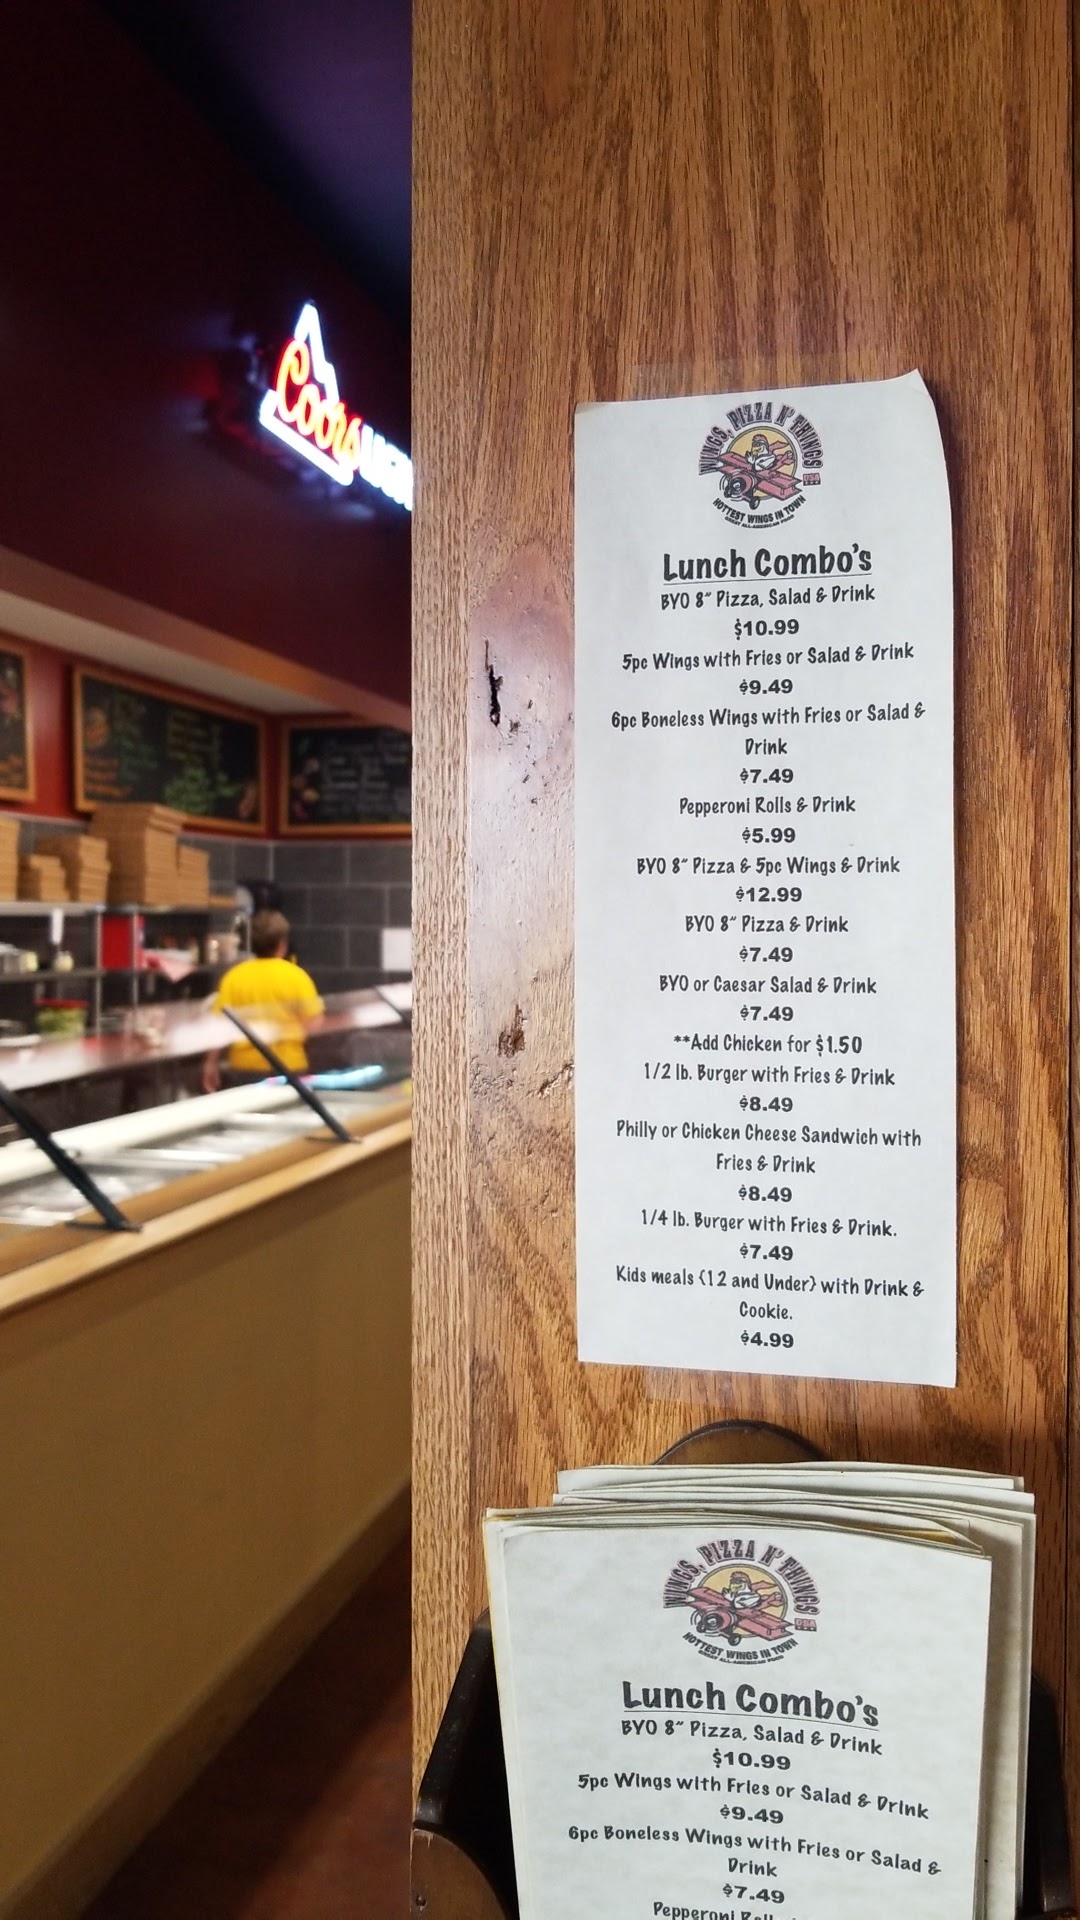 Coors
WINGS, PIZZA N' THINGS
USA
HOTTEST WINGS IN TOWN
GREAT ALL-AMERICAN FOOD
Lunch Combo's
BYO 8" Pizza, Salad & Drink
$10.99
5pc Wings with Fries or Salad & Drink
$9.49
6pc Boneless Wings with Fries or Salad &
Drink
$7.49
Pepperoni Rolls & Drink
$5.99
BYO 8" Pizza & 5pc Wings & Drink
$12.99
BYO 8" Pizza & Drink
$7.49
BYO or Caesar Salad & Drink
$7.49
**Add Chicken for $1.50
1/2 lb. Burger with Fries & Drink
$8.49
Philly or Chicken Cheese Sandwich with
Fries & Drink
$8.49
1/4 lb. Burger with Fries & Drink.
$7.49
Kids meals {12 and Under} with Drink &
Cookie.
$4.99
WINGS, PIZZA N' THINGS
USA
HOTTEST WINGS IN TOWN
GREAT ALL-AMERICAN FOOD
Lunch Combo's
BYO 8" Pizza, Salad & Drink
$10.99
5pc Wings with Fries or Salad & Drink
$9.49
6pc Boneless Wings with Fries or Salad &
Drink
$7.49
Pepperoni